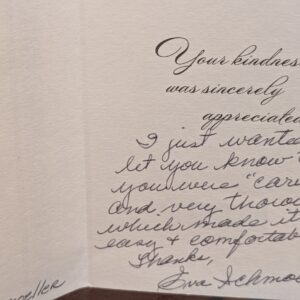 Your kindness
was sincerely
appreciated
I just wante
let you know
you were "care
and very thoro
which made it
easy & comfortabl
Thanks,